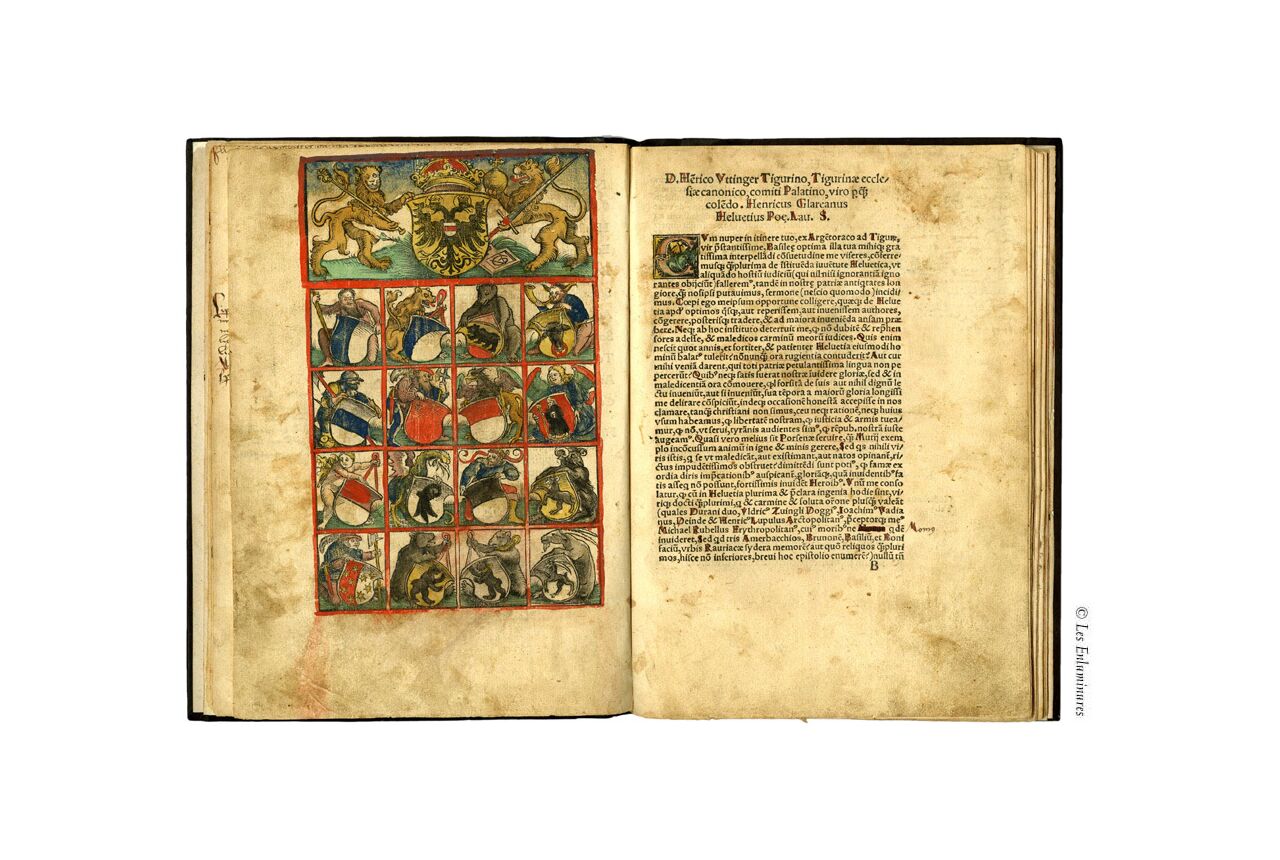 D. Hērico Vttinger Tigurino, Tigurinæ eccle/
siæ canonico, comiti Palatino, viro q̄q̄
colēdo. Henricus Glareanus
Heluetius Poę. Lau. S.
CVm nuper in itinere tuo, ex Argētoraco ad Tigurū,
vir p̄stantissime. Basileę optima illa tua mihiq; gra
tissima interpellādi cōsuetudine me viseres, cōferre
musq; q̄plurima de istituēda iuuētute Heluetica, vt
aliquādo hostiū iudiciū (qui nil nisi ignorantiā igno
rantes obijciūt) fallerem⁹, tandē in nostrę patriæ antiqtates lon
giore, q̄ nosipsi putauimus, sermone (nescio quomodo) incidi
mus. Cœpi ego meipsum opportune colligere, quæq; de Helue
tia apđ optimos q̄sq;, aut reperissem, aut inuenissem authores,
cōgerere, posterisq; tradere, & ad maiora inueniēda ansam præ
bere. Neq; ab hoc instituto deterruit me, q̄ nō dubitē & rep̄hen
sores adesse, & maledicos carminū meorū iudices. Quis enim
nescit quot annis, et fortiter, & patienter Heluetia eiusmodi ho
minū balat⁹ tulerit? nōnunq̄ ora rugientia contuderit? Aut cur
mihi veniā darent, qui toti patriæ petulantissima lingua non pe
percerūt? Quib⁹ neq; satis fuerat nostræ īuidere gloriæ, sed & in
maledicentiā ora cōmouere, q̄ forsitā de suis aut nihil dignū le
ctu inueniūt, aut si inueniūt, sua tēpora a maiorū gloria longissi
me delirare cōspiciūt, indeq; occasionē honestā accepisse in nos
clamare, tanq̄ christiani non simus, ceu neq; rationē, neq; huius
vsum habeamus, q̄ libertatē nostram, q̄ iusticia & armis tuea/
mur, q̄ nō, vt serui, tyrānis audientes sim⁹, q̄ rēpub. nostrā iuste
augeam⁹. Quasi vero melius sit Porsenæ seruire, q̄ Mutij exem
plo incōcussum animū in igne & minis gerere. Sed qs nihili vi
ris istis, q se vt maledicāt, aut existimant, aut natos opinanē, ri/
ctus impudētissimos obstruet? dimittēdi sunt poti⁹, q̄ famæ ex
ordia diris imp̄cationib⁹ auspicanē, gloriāq;, quā inuidentib⁹ fa
tis asseq nō possunt, fortissimis inuidēt Heroib⁹. Vnū me conso
latur, q̄ cū in Heluetia plurima & p̄clara ingenia hodie sint, vi/
riq; docti q̄plurimi, q & carmine & soluta orōne plusq̄ valeāt
(quales Durani duo, Vldric⁹ Zuingli Doggi⁹, Ioachim⁹ Vadia
nus, Deinde & Henric⁹ Lupulus Arctopolitan⁹, p̄ceptorq; me⁹
Michael Rubellus Erythropolitan⁹, cui⁹ morib⁹ ne qdē Momo
inuideret, Sed qd tris Amerbacchios, Brunonē, Basiliū, et Boni
faciū, vrbis Rauriacæ sydera memorē? aut quō reliquos q̄pluri
mos, hisce nō inferiores, breui hoc epistolio enumerē?) nullū tñ
B
© Les Enluminures